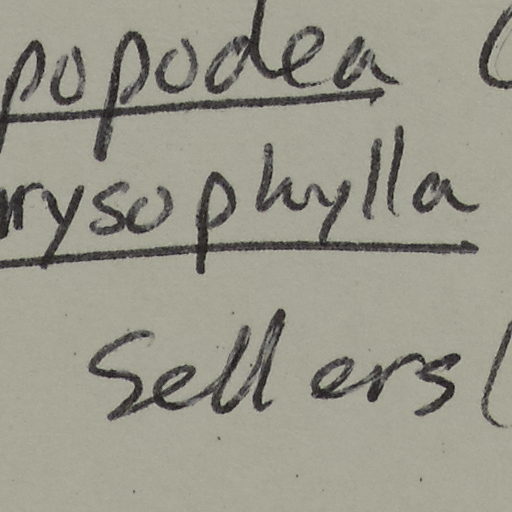 popodea (
rysophylla
Sellers (